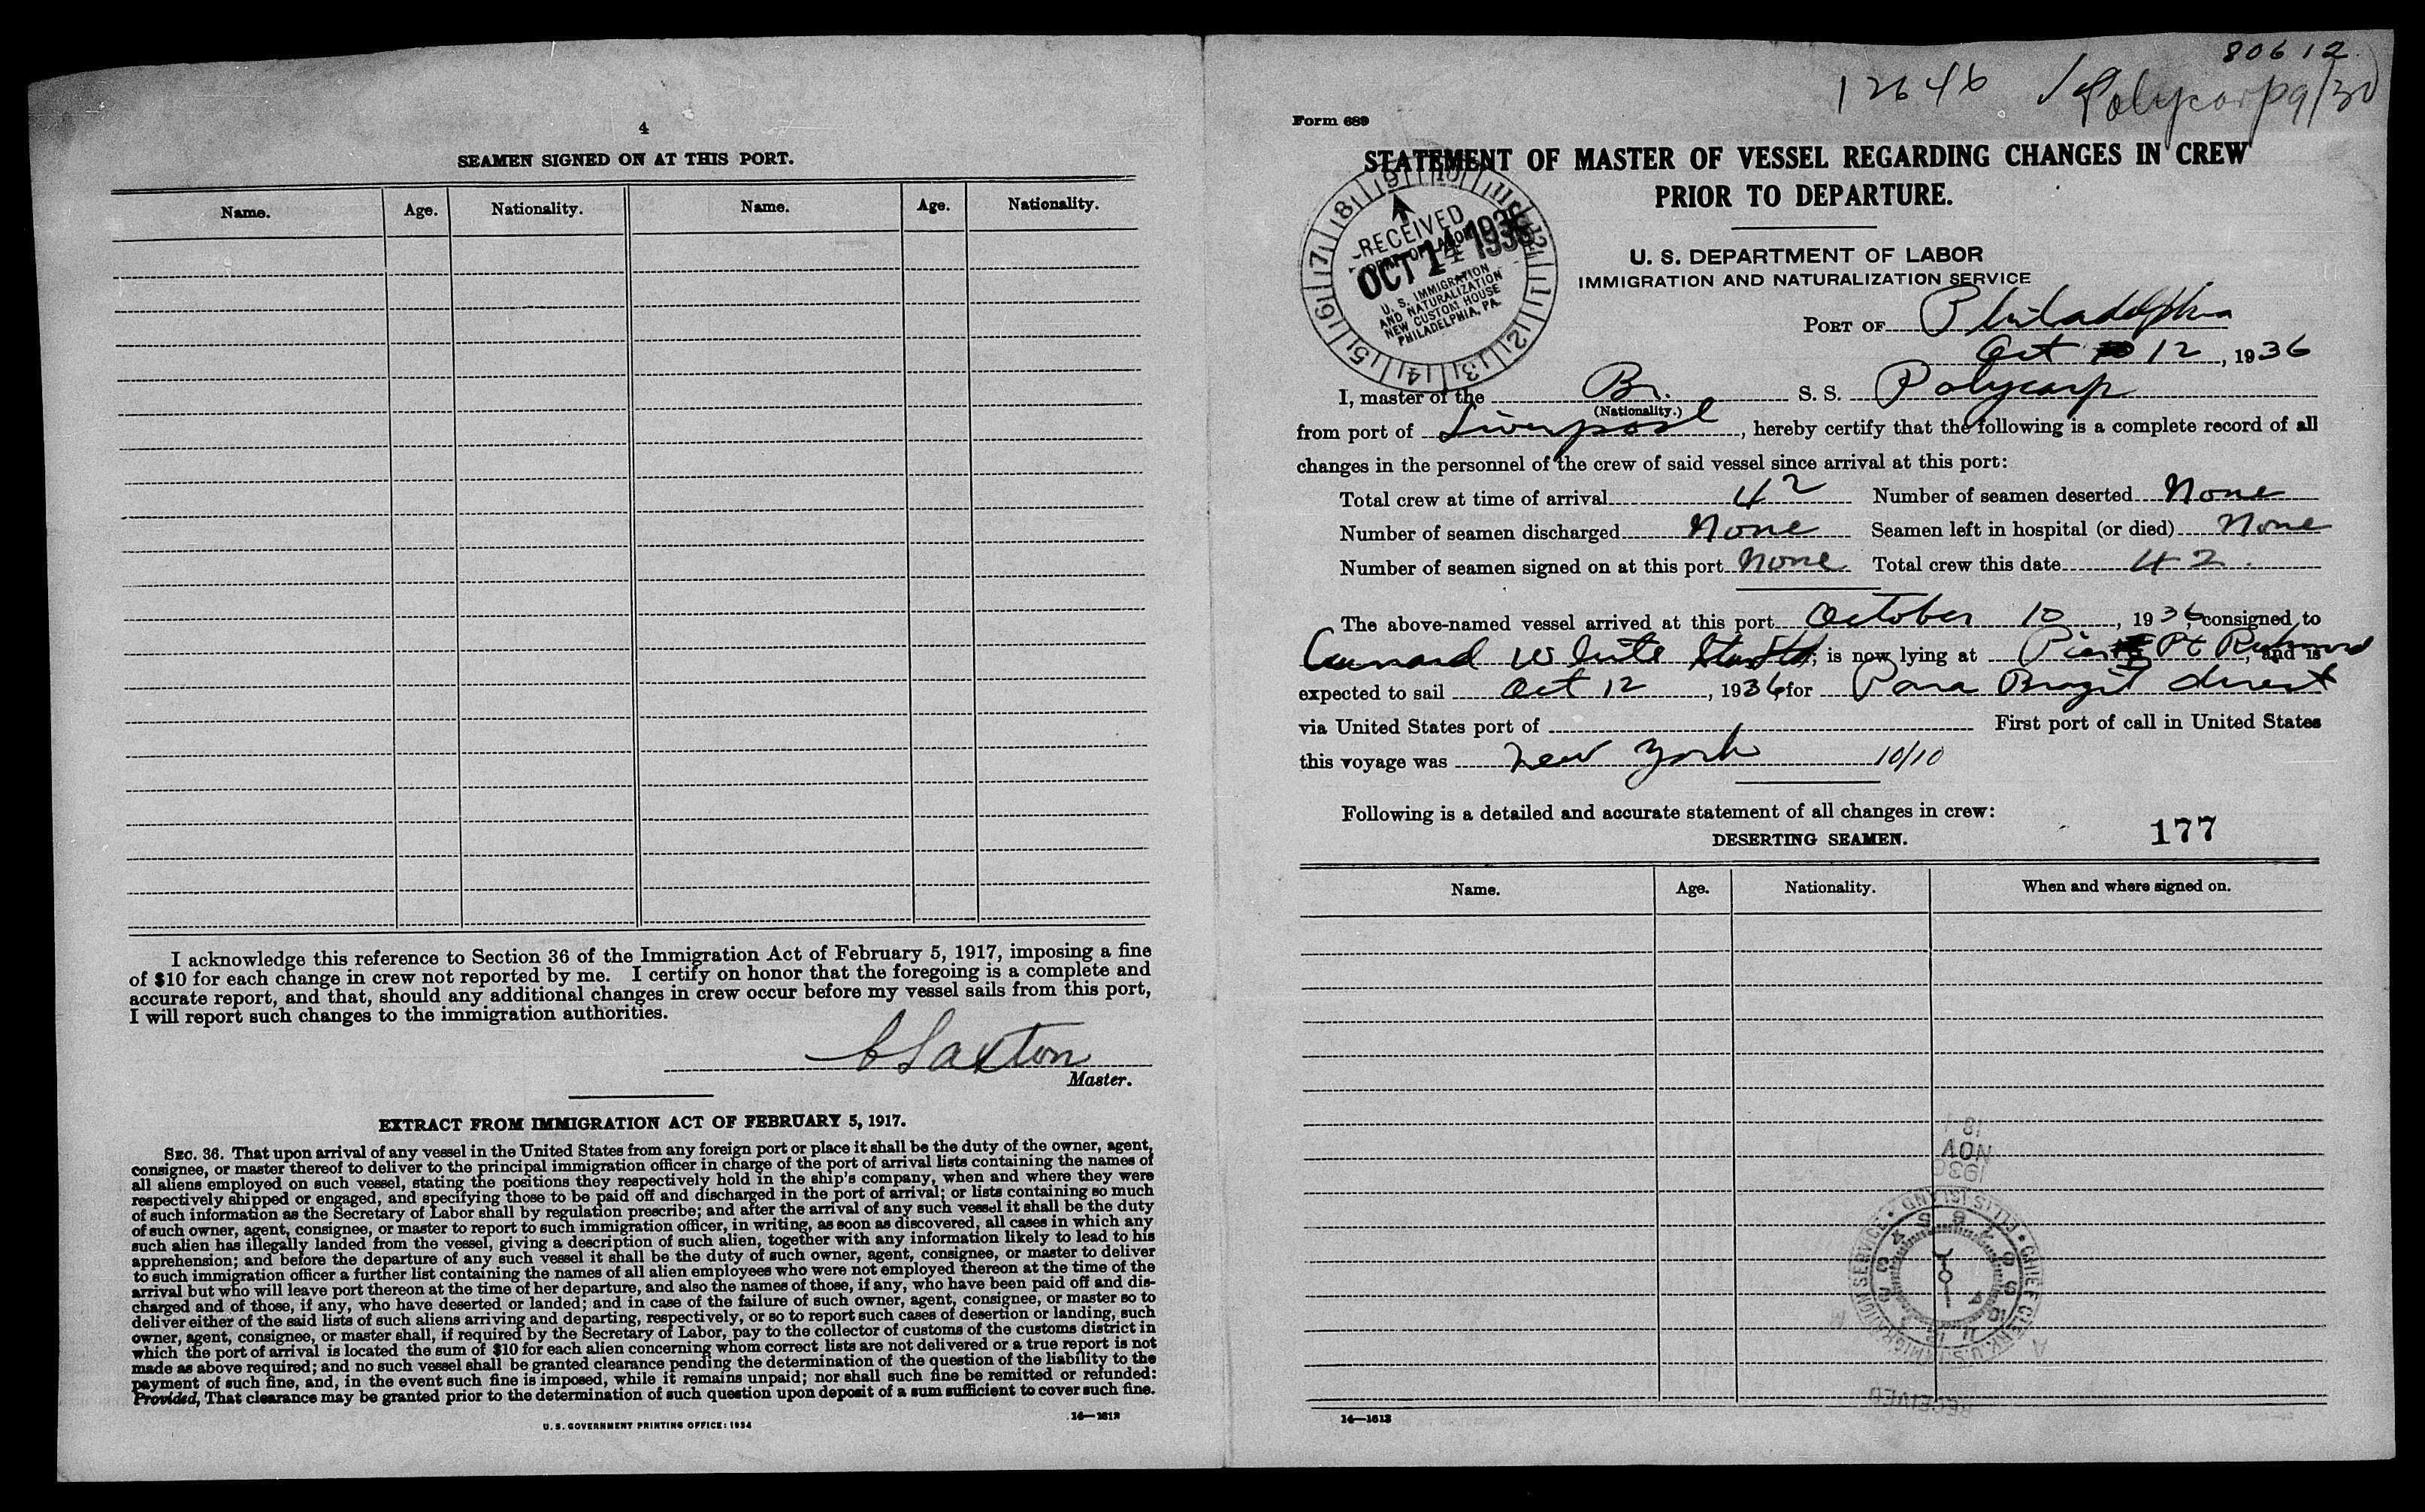 4
SEAMEN SIGNED ON AT THIS PORT.
Name. Age. Nationality. Name. Age. Nationality.
I acknowledge this reference to Section 36 of the Immigration Act of February 5, 1917, imposing a fine
of $10 for each change in crew not reported by me. I certify on honor that the foregoing is a complete and
accurate report, and that, should any additional changes in crew occur before my vessel sails from this port,
I will report such changes to the immigration authorities.
Master.
EXTRACT FROM IMMIGRATION ACT OF FEBRUARY 5, 1917.
SEC. 36. That upon arrival of any vessel in the United States from any foreign port or place it shall be the duty of the owner, agent,
consignee, or master thereof to deliver to the principal immigration officer in charge of the port of arrival lists containing the names of
all aliens employed on such vessel, stating the positions they respectively hold in the ship's company, when and where they were
respectively shipped or engaged, and specifying those to be paid off and discharged in the port of arrival; or lists containing so much
of such information as the Secretary of Labor shall by regulation prescribe; and after the arrival of any such vessel it shall be the duty
of such owner, agent, consignee, or master to report to such immigration officer, in writing, as soon as discovered, all cases in which any
such alien has illegally landed from the vessel, giving a description of such alien, together with any information likely to lead to his
apprehension; and before the departure of any such vessel it shall be the duty of such owner, agent, consignee, or master to deliver
to such immigration officer a further list containing the names of all alien employees who were not employed thereon at the time of the
arrival but who will leave port thereon at the time of her departure, and also the names of those, if any, who have been paid off and dis-
charged and of those, if any, who have deserted or landed; and in case of the failure of such owner, agent, consignee, or master so to
deliver either of the said lists of such aliens arriving and departing, respectively, or so to report such cases of desertion or landing, such
owner, agent, consignee, or master shall, if required by the Secretary of Labor, pay to the collector of customs of the customs district in
which the port of arrival is located the sum of $10 for each alien concerning whom correct lists are not delivered or a true report is not
made as above required; and no such vessel shall be granted clearance pending the determination of the question of the liability to the
payment of such fine, and, in the event such fine is imposed, while it remains unpaid; nor shall such fine be remitted or refunded:
Provided, That clearance may be granted prior to the determination of such question upon deposit of a sum sufficient to cover such fine.
U.S. GOVERNMENT PRINTING OFFICE: 1934
14—1613
80612
12646 Polycarp 9/30
Form 689
STATEMENT OF MASTER OF VESSEL REGARDING CHANGES IN CREW
PRIOR TO DEPARTURE.
RECEIVED
OCT 14 1936
U. S. IMMIGRATION
AND NATURALIZATION
NEW CUSTOM HOUSE
PHILADELPHIA, PA.
U. S. DEPARTMENT OF LABOR
IMMIGRATION AND NATURALIZATION SERVICE
PORT OF Philadelphia
Oct 12, 1936
I, master of the Br. S. S. Polycarp
(Nationality.)
from port of Liverpool, hereby certify that the following is a complete record of all
changes in the personnel of the crew of said vessel since arrival at this port:
Total crew at time of arrival 42 Number of seamen deserted None
Number of seamen discharged None Seamen left in hospital (or died) None
Number of seamen signed on at this port None Total crew this date 42.
The above-named vessel arrived at this port October 10, 1936, consigned to
Cunard White Star; is now lying at Pier Pt Richmond, and is
expected to sail Oct 12, 1936, for Para Brazil direct
via United States port of First port of call in United States
this voyage was New York 10/10
Following is a detailed and accurate statement of all changes in crew:
DESERTING SEAMEN. 177
Name. Age. Nationality. When and where signed on.
NOV
CHIEF CLERK U.S. IMMIGRATION SERVICE • ELLIS ISLAND
RECEIVED
14—1613